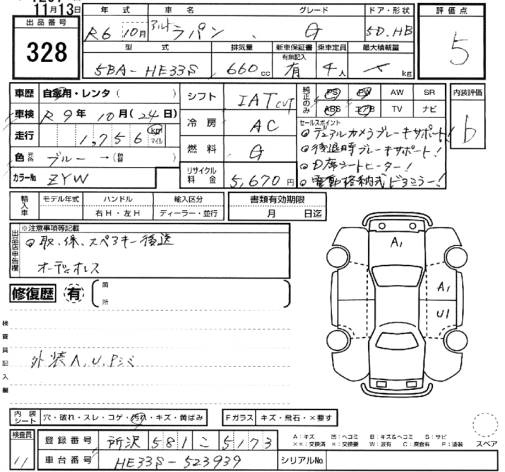 11月13日
出品番号
328
年式 車名 グレード ドア・形状
R6 10月 アルトラパン G 5D.HB
型式 排気量 新車保証書 有無記入 乗車定員 最大積載量
5BA-HE33S 660cc 有 4人 × kg
評価点
5
車歴 自家用・レンタ( )
車検 R 9年 10月(24日)
走行 1,756 km マイル
色 ブルー →( )
カラーNo ZYW
シフト IAT
冷房 AC
燃料 G
リサイクル料金 5,670円
純正のみ PS PW AW SR
ABS エアB TV ナビ
セールスポイント
デュアルカメラブレーキサポート!
後退時ブレーキサポート!
D席シートヒーター!
電動格納式ドアミラー!
内装評価
b
輸入車 モデル年式 ハンドル 輸入区分
右H・左H ディーラー・並行
書類有効期限
月 日迄
出品店申告欄
※注意事項等記載
取、保、スペアキー後送
オーディオレス
修復歴 有 箇所
検査員記入欄
外装A,U,Pシミ
A1
A1
U1
内装シート 穴・破れ・スレ・コゲ・汚れ・キズ・黄ばみ
Fガラス キズ・飛石・×要す
A:キズ U:ヘコミ B:キズ&ヘコミ S:サビ
××:交換済 ×:要交換 W:波有 C:腐食有 P:塗装
スペア
検査員 11
登録番号 所沢 581 こ 5173
車台番号 HE33S-523939
シリアルNo